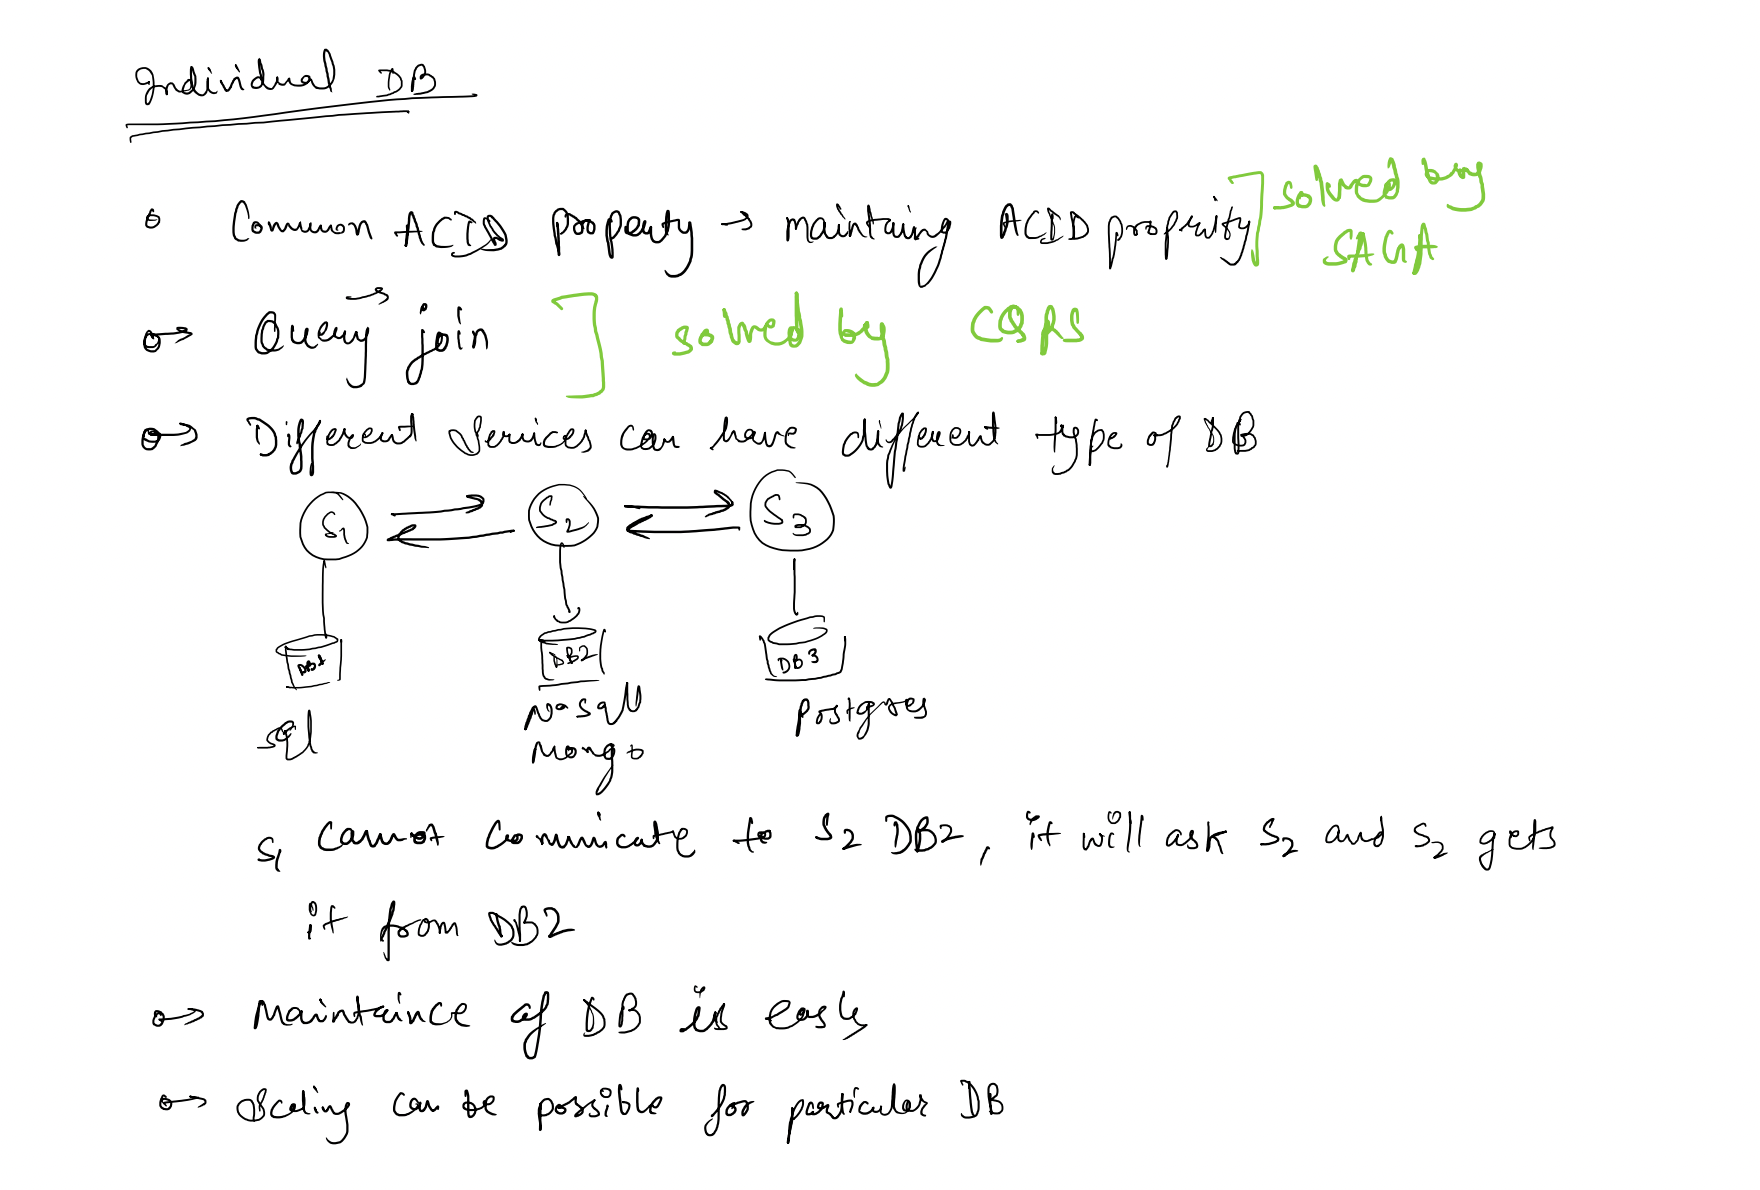 Individual DB
Common ACID property → maintaing ACID property ] solved by
SAGA
Query → join ] solved by CQRS
Different Services can have different type of DB
S1 S2 S3
DB1 DB2 DB3
sql NoSqll Postgres
Mongo
S1 cannot comunicate to S2 DB2, it will ask S2 and S2 gets
it from DB2
Maintaince of DB is easy
Scaling can be possible for particular DB